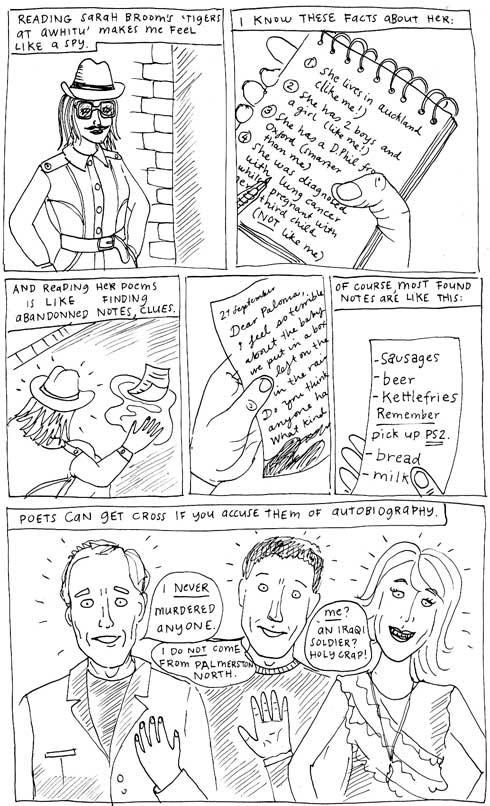 READING SARAH BROOM'S 'TIGERS
AT AWHITU' MAKES ME FEEL
LIKE A SPY.
I KNOW THESE FACTS ABOUT HER:
① She lives in Auckland
(like me!)
② She has 2 boys and
a girl (like me!)
③ She has a D.Phil from
Oxford (smarter
than me)
④ She was diagnosed
with lung cancer
while pregnant with
her third child
(NOT like me)
AND READING HER POEMS
IS LIKE FINDING
ABANDONNED NOTES, CLUES.
29 September
Dear Paloma,
I feel so terrible
about the baby
we put in a box
left on the
in the rain
Do you think
anyone ha
What kind
OF COURSE, MOST FOUND
NOTES ARE LIKE THIS:
- Sausages
- beer
- Kettlefries
Remember
pick up PS2.
- bread
- milk
POETS CAN GET CROSS IF YOU ACCUSE THEM OF AUTOBIOGRAPHY.
I NEVER
MURDERED
ANYONE.
I DO NOT COME
FROM PALMERSTON
NORTH.
ME?
AN IRAQI
SOLDIER?
HOLY CRAP!